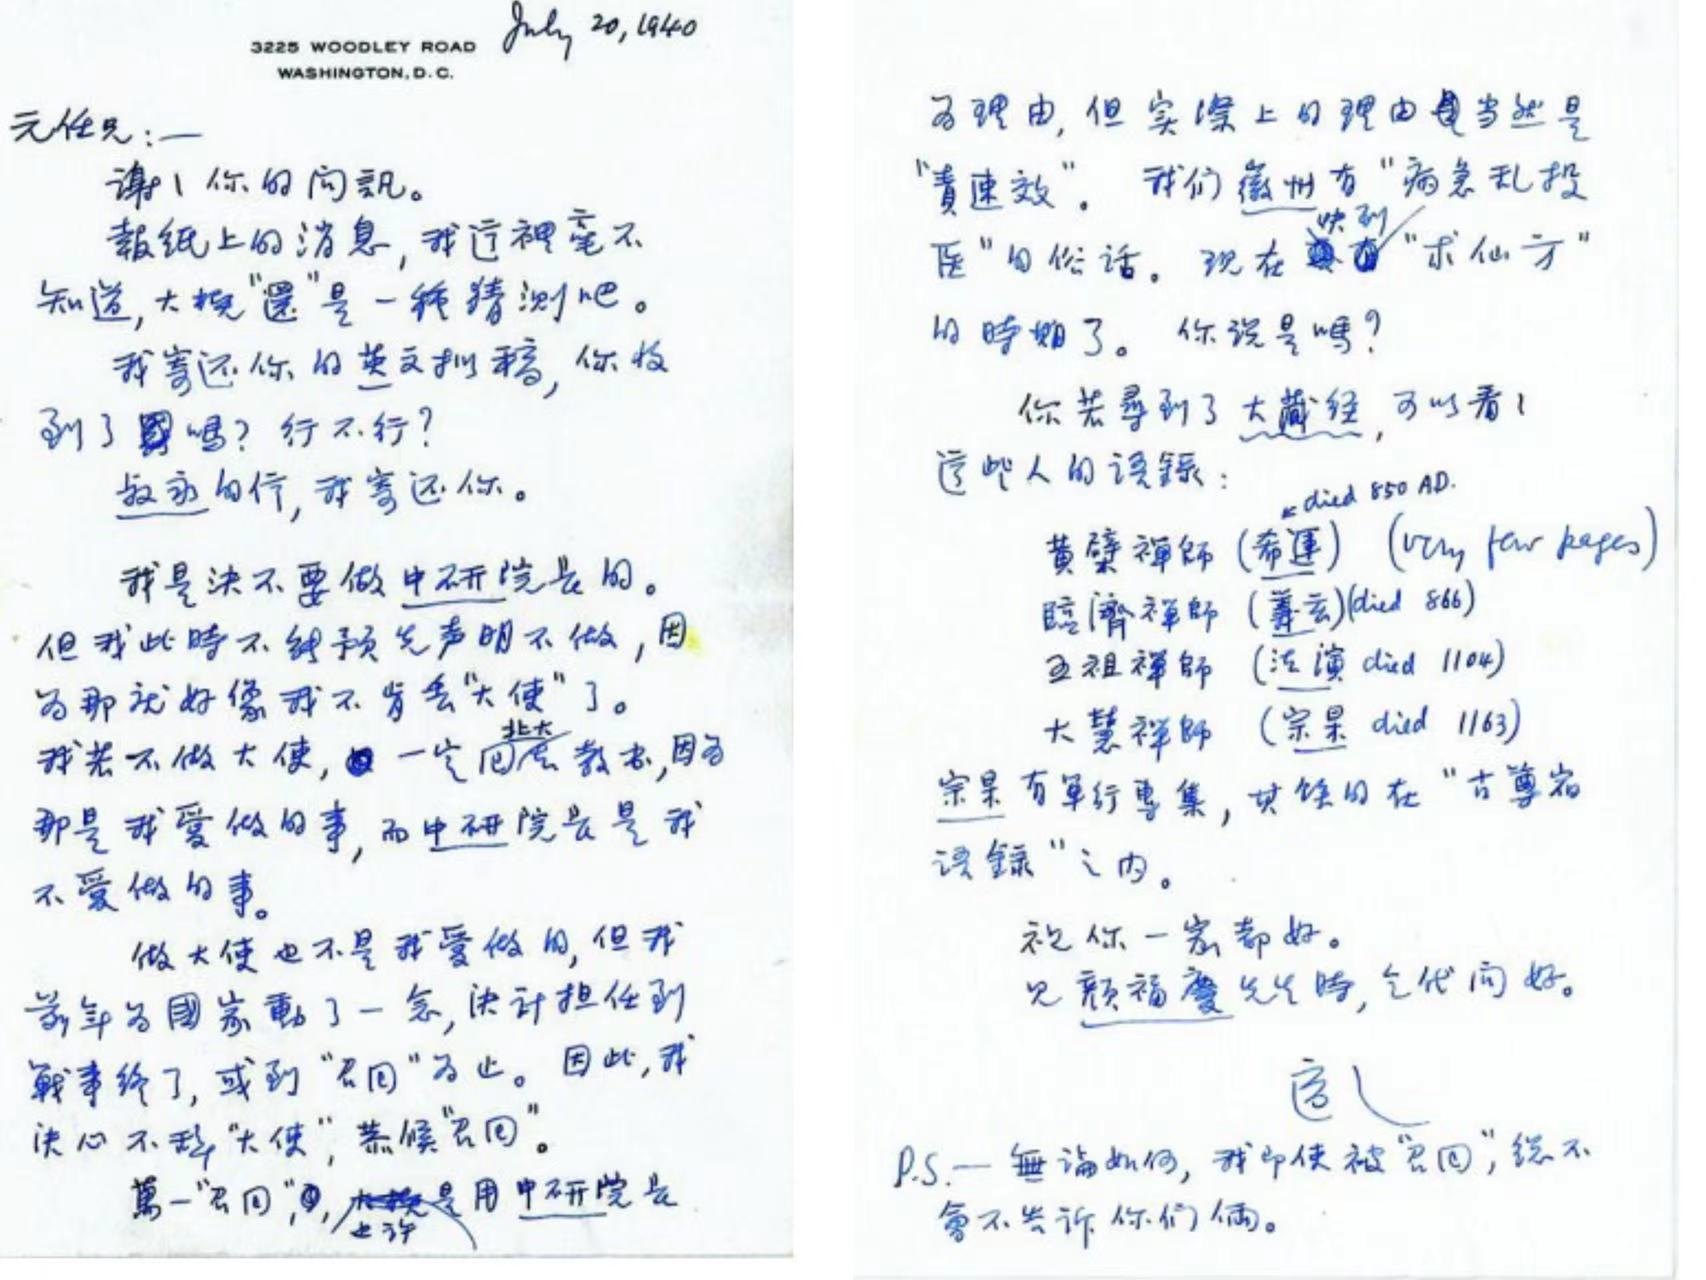 July 20, 1940
3225 WOODLEY ROAD
WASHINGTON, D. C.
元任兄：—
謝〻你的问訊。
報紙上的消息，我这裡毫不
知道，大概"還"是一種猜测吧。
我寄还你的英文拟稿，你收
到了嗎？行不行？
叔永的信，我寄还你。
我是决不要做中研院長的。
但我此時不能预先声明不做，因
为那就好像我不肯丢"大使"了。
我若不做大使，一定回北大去教书，因为
那是我爱做的事，而中研院長是我
不爱做的事。
做大使也不是我爱做的，但我
前年为國家動了一念，决计担任到
戰事终了，或到"召回"为止。因此，我
决心不辞"大使"，恭候"召回"。
萬一"召回"，也许是用中研院長
为理由，但实際上的理由当然是
"責速效"。我们徽州有"病急乱投
医"的俗话。现在快到"求仙方"
的時期了。你说是嗎？
你若尋到了大藏经，可以看〻
这些人的语錄：
died 850 AD.
黄檗禅師（希運） (very few pages)
臨濟禅師（義玄）(died 866)
五祖禅師（法演 died 1104)
大慧禅師（宗杲 died 1163)
宗杲有单行專集，其餘的在"古尊宿
语錄"之内。
祝你一家都好。
见顏福慶先生時，乞代问好。
适
P.S. — 無論如何，我即使被"召回"，總不
會不告诉你们倆。